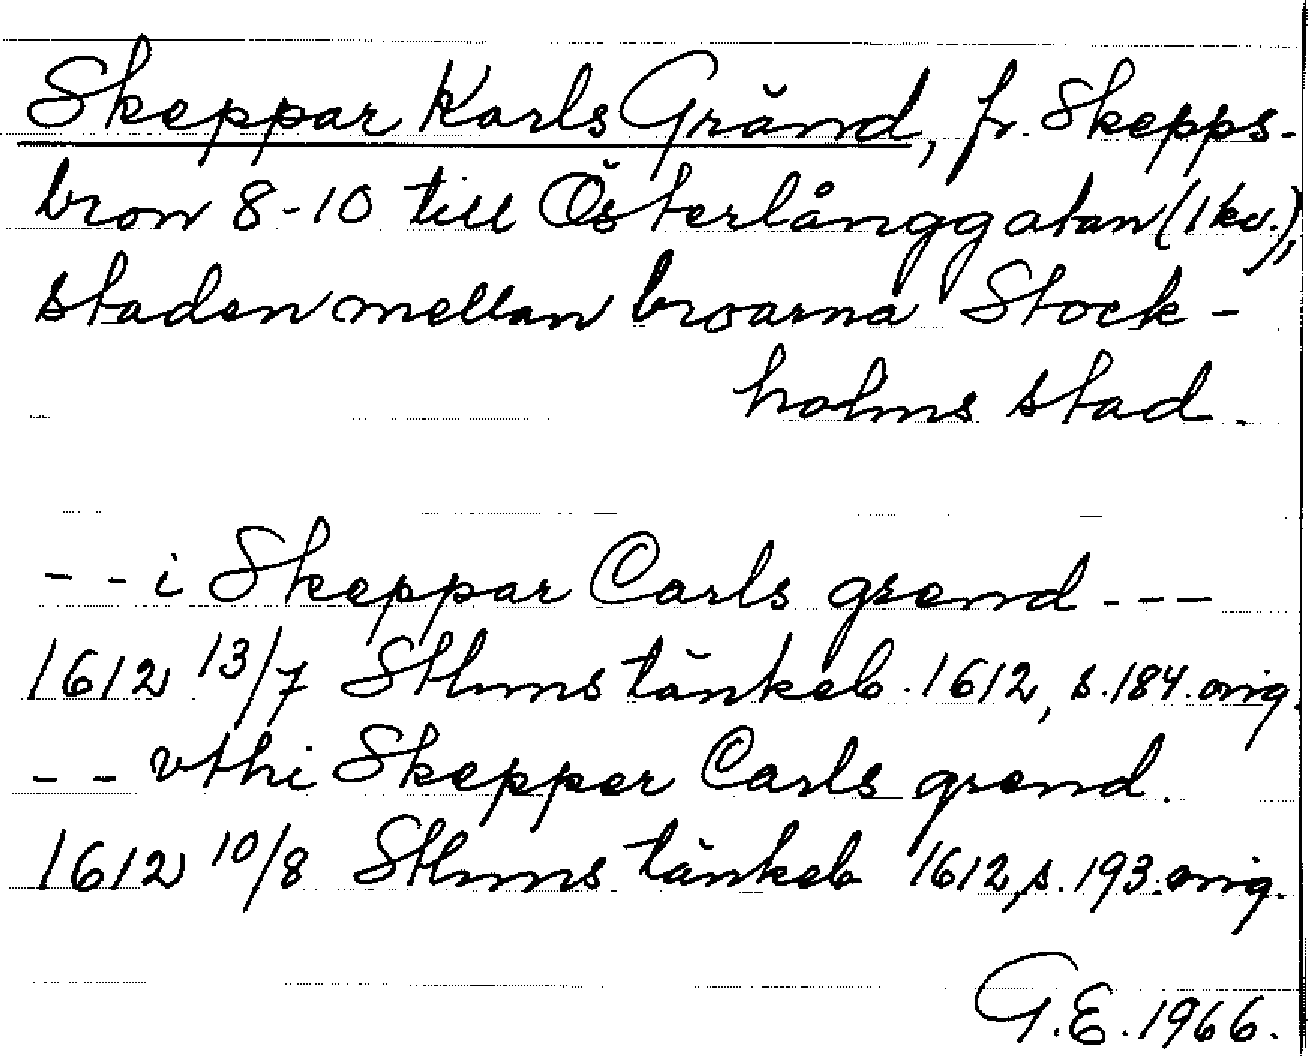 Skeppar Karls Gränd, fr. Skepps-
bron 8-10 till Österlånggatan (1 kv.),
staden mellan broarna Stock-
holms stad.
- - i Skeppar Carls grend - - -
1612 13/7 Sthms tänkeb. 1612, s. 184. orig.
- - vthi Skepper Carls grend.
1612 10/8 Sthms tänkeb 1612, s. 193. orig.
G.E. 1966.